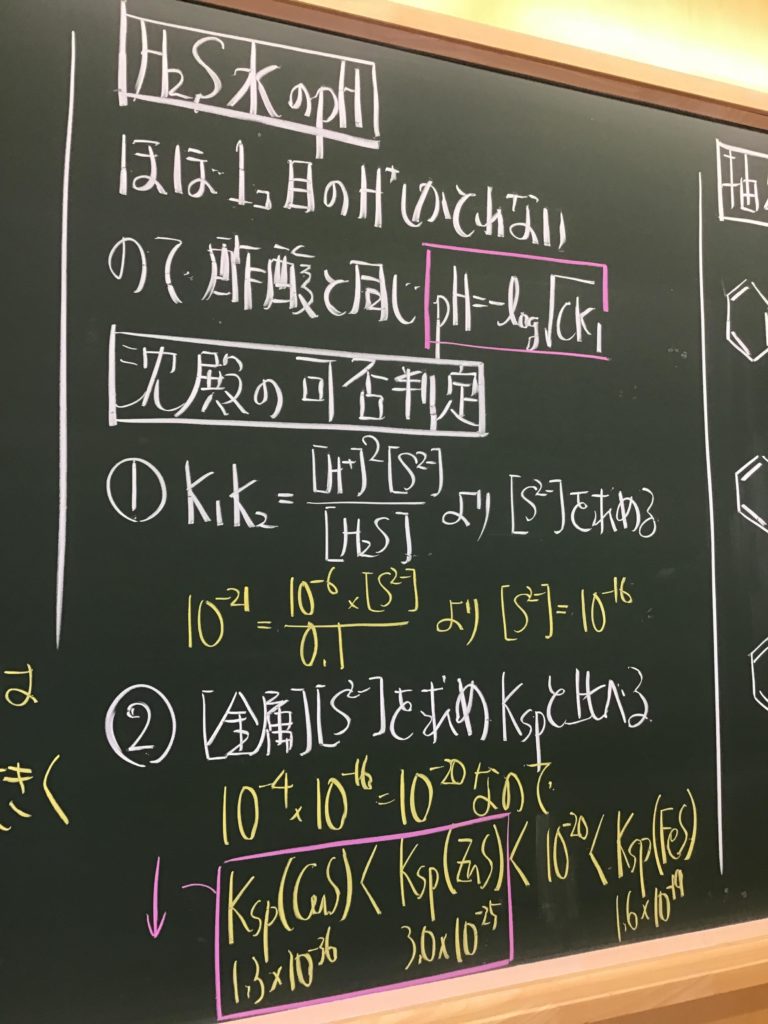 H₂S水のpH
ほぼ1コ目のH⁺しかとれない
ので酢酸と同じ pH=-log√CK₁
沈殿の可否判定
① K₁K₂ = [H⁺]²[S²⁻] / [H₂S] より [S²⁻]を求める
10⁻²¹ = 10⁻⁶×[S²⁻] / 0.1 より [S²⁻]=10⁻¹⁶
② [金属][S²⁻]を求めKspと比べる
10⁻⁴×10⁻¹⁶=10⁻²⁰なので
↓ Ksp(CuS) < Ksp(ZnS) < 10⁻²⁰ < Ksp(FeS)
1.3×10⁻³⁶ 3.0×10⁻²⁵ 1.6×10⁻¹⁹
は
きく
抽